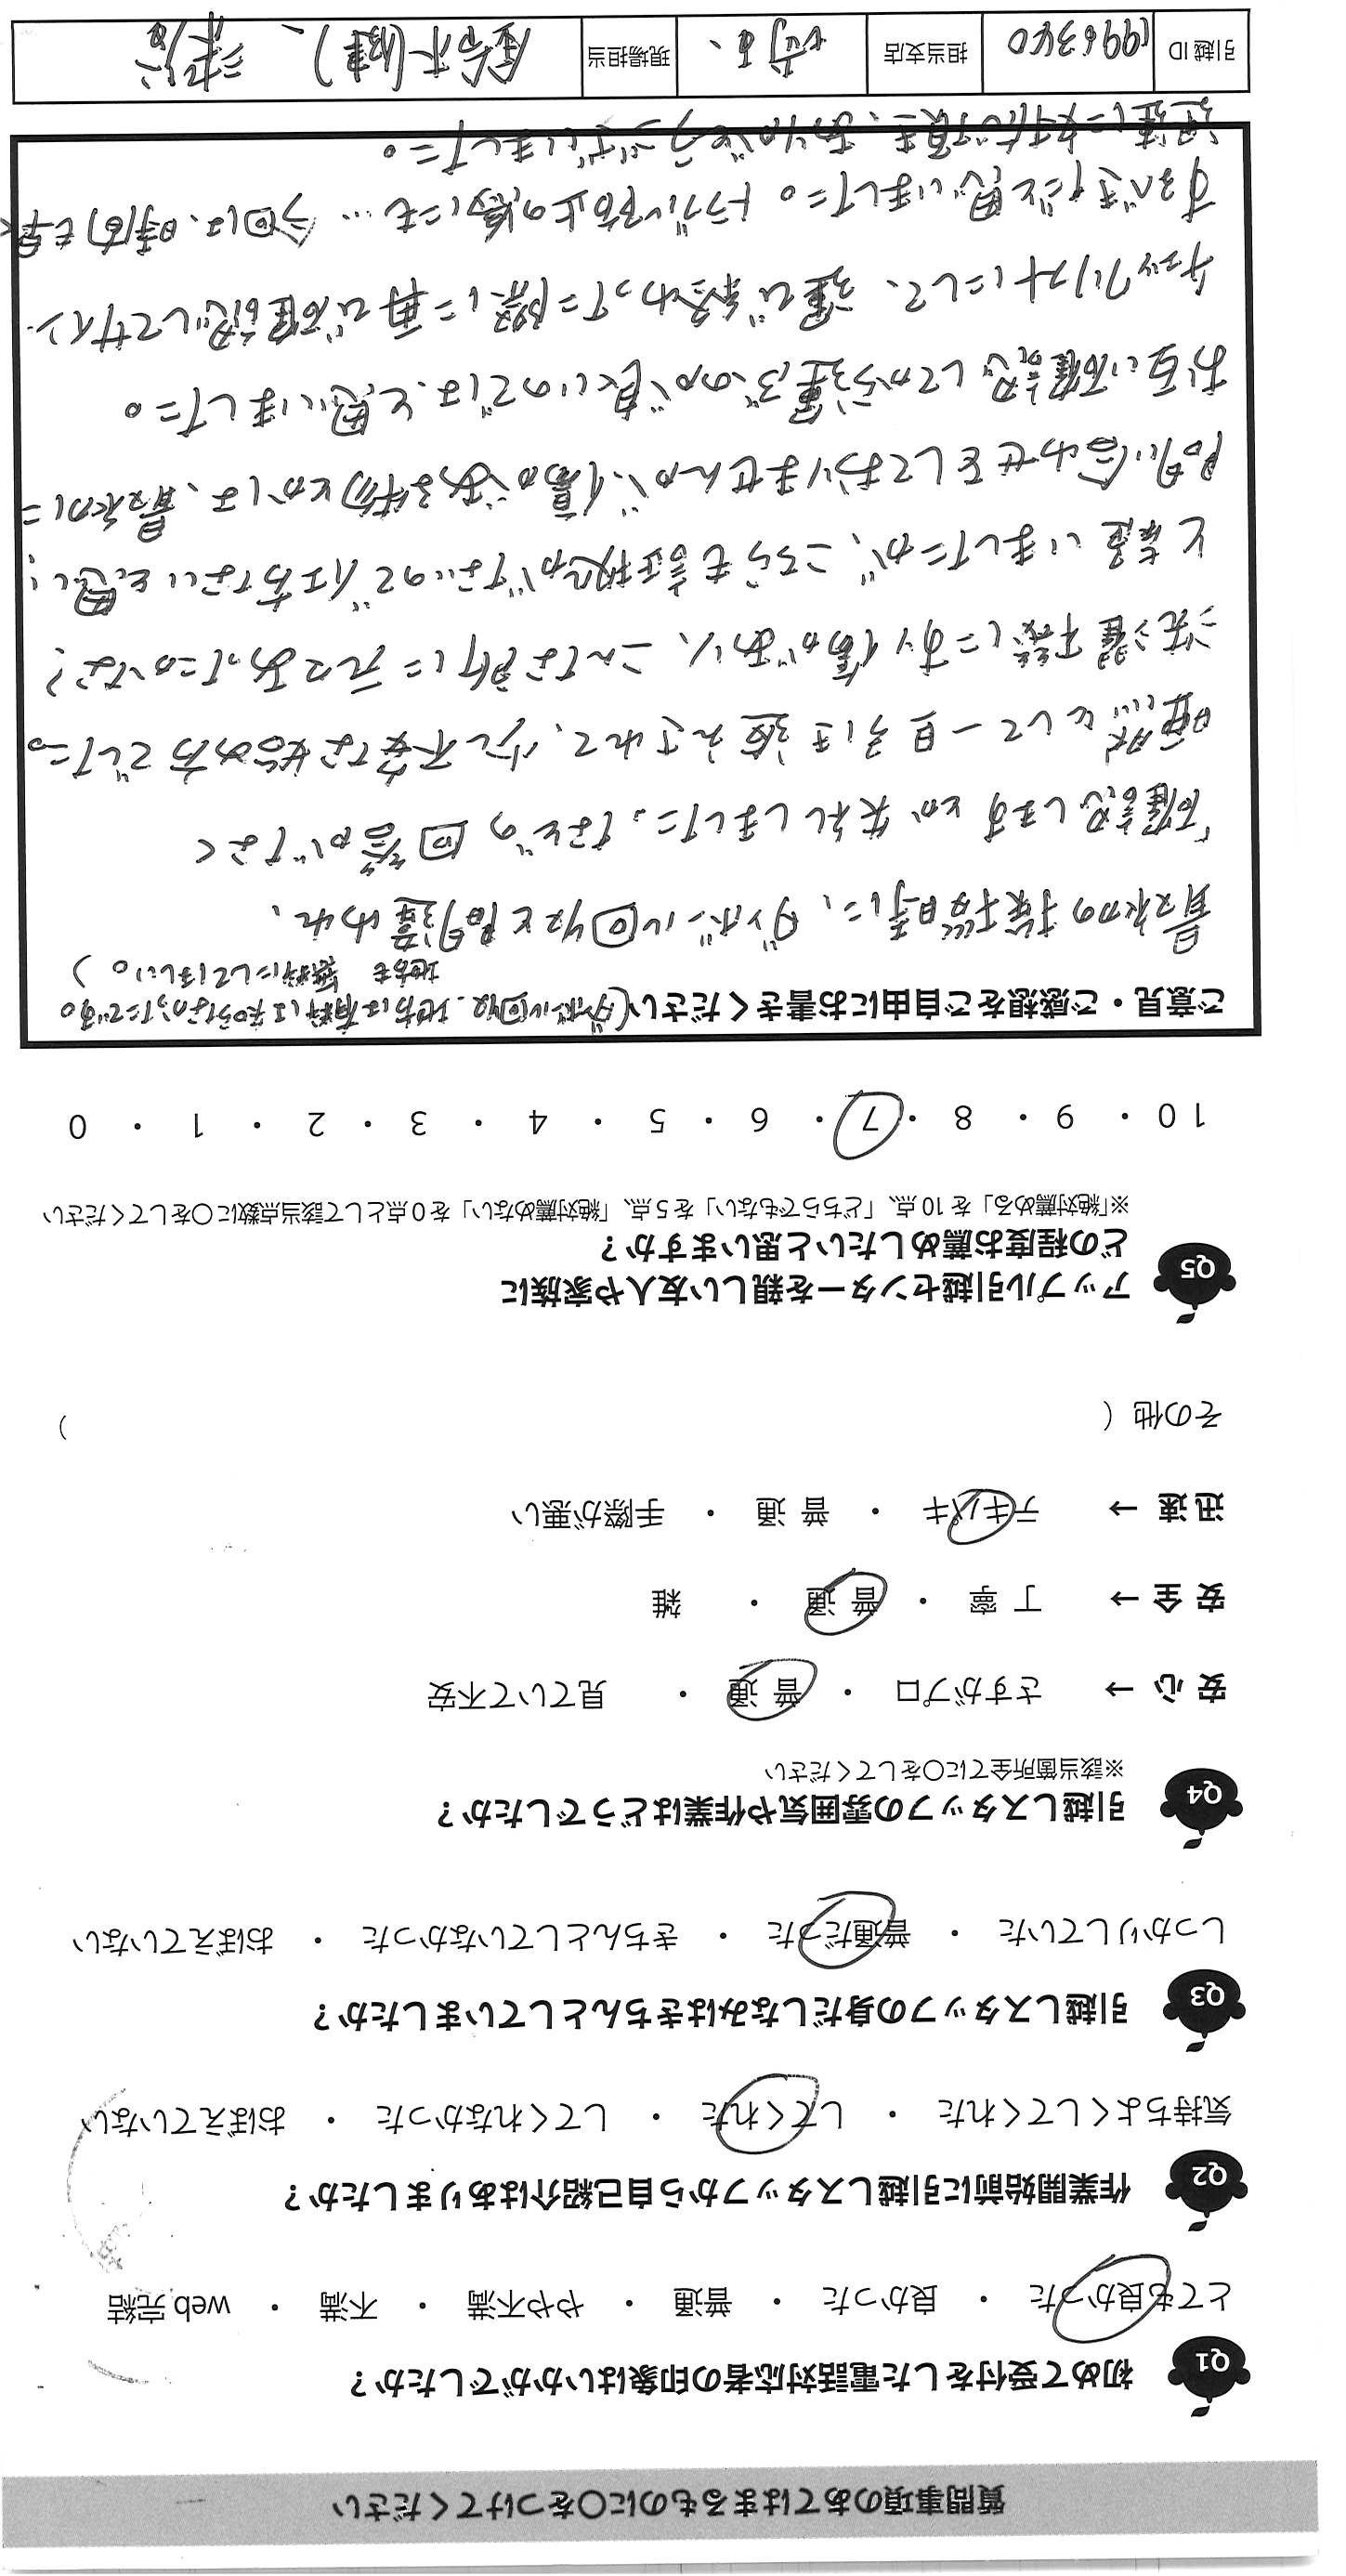 質問事項のあてはまるものに○をつけてください
Q1 初めて受付をした電話対応者の印象はいかがでしたか？
とても良かった ・ 良かった ・ 普通 ・ やや不満 ・ 不満 ・ web完結
Q2 作業開始前に引越しスタッフから自己紹介はありましたか？
気持ちよくしてくれた ・ してくれた ・ してくれなかった ・ おぼえていない
Q3 引越しスタッフの身だしなみはきちんとしていましたか？
しっかりしていた ・ 普通だった ・ きちんとしていなかった ・ おぼえていない
Q4 引越しスタッフの雰囲気や作業はどうでしたか？
※該当箇所全てに○をしてください
安心→ さすがプロ ・ 普通 ・ 見ていて不安
安全→ 丁寧 ・ 普通 ・ 雑
迅速→ テキパキ ・ 普通 ・ 手際が悪い
その他（ ）
Q5 アップル引越センターを親しい友人や家族に
どの程度お薦めしたいと思いますか？
※「絶対薦める」を10点、「どちらでもない」を5点、「絶対薦めない」を0点として該当点数に○をしてください
10 ・ 9 ・ 8 ・ 7 ・ 6 ・ 5 ・ 4 ・ 3 ・ 2 ・ 1 ・ 0
ご意見・ご感想をご自由にお書きください(ダンボル回収、地方は有料は知らなかったです。
地方も無料にしてほしい。)
最初の挨拶時に、ダンボル回収と間違われ、
「確認しますとか失礼しました。などの回答がなく
唖然として一旦引き返えされて、少し不安な始め方でした。
洗濯機にすり傷があり、こんな所に元々あったかな？
と疑いましたが、こちらも証拠がないので仕方ないと思い、
問い合わせをしておりませんが、傷がある物とかは、最初に
お互い確認してから運ぶのが良いのでは、と思いました。
チェックリストにして、運び終わった際に再び確認してサイン
すべきだと思いました。トラブル防止の為にも… 今回は、時間も早く
迅速に対応で頂き、ありがとうございました。
引越ID 1996340 担当支店 埼玉、 現場担当 鈴木(健)、